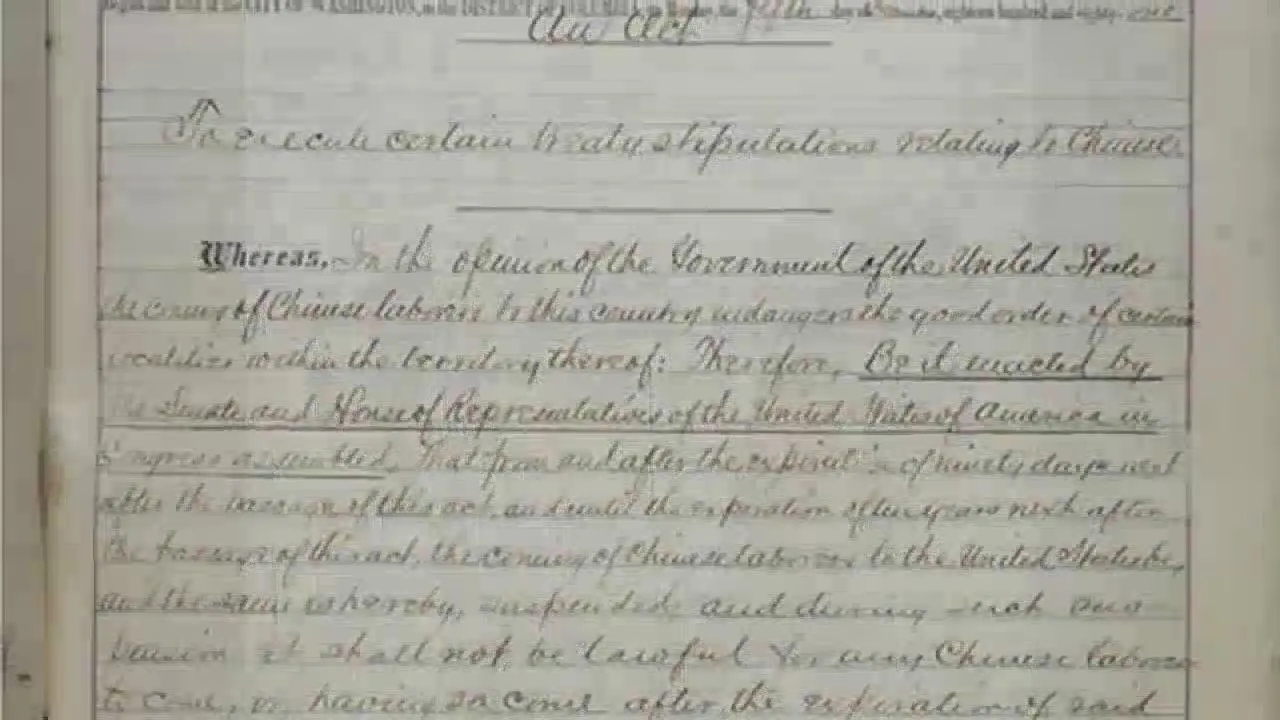 CITY OF WASHINGTON, in the DISTRICT OF day of eighteen hundred and eighty-one
An Act
To execute certain treaty stipulations relating to Chinese.
Whereas, In the opinion of the Government of the United States
the coming of Chinese laborers to this country endangers the good order of certain
localities within the territory thereof: Therefore, Be it enacted by
the Senate and House of Representatives of the United States of America in
Congress assembled, That from and after the expiration of ninety days next
after the passage of this act, and until the expiration of ten years next after
the passage of this act, the coming of Chinese laborers to the United States be,
and the same is hereby, suspended; and during such sus-
pension it shall not be lawful for any Chinese laborer
to come, or, having so come after the expiration of said